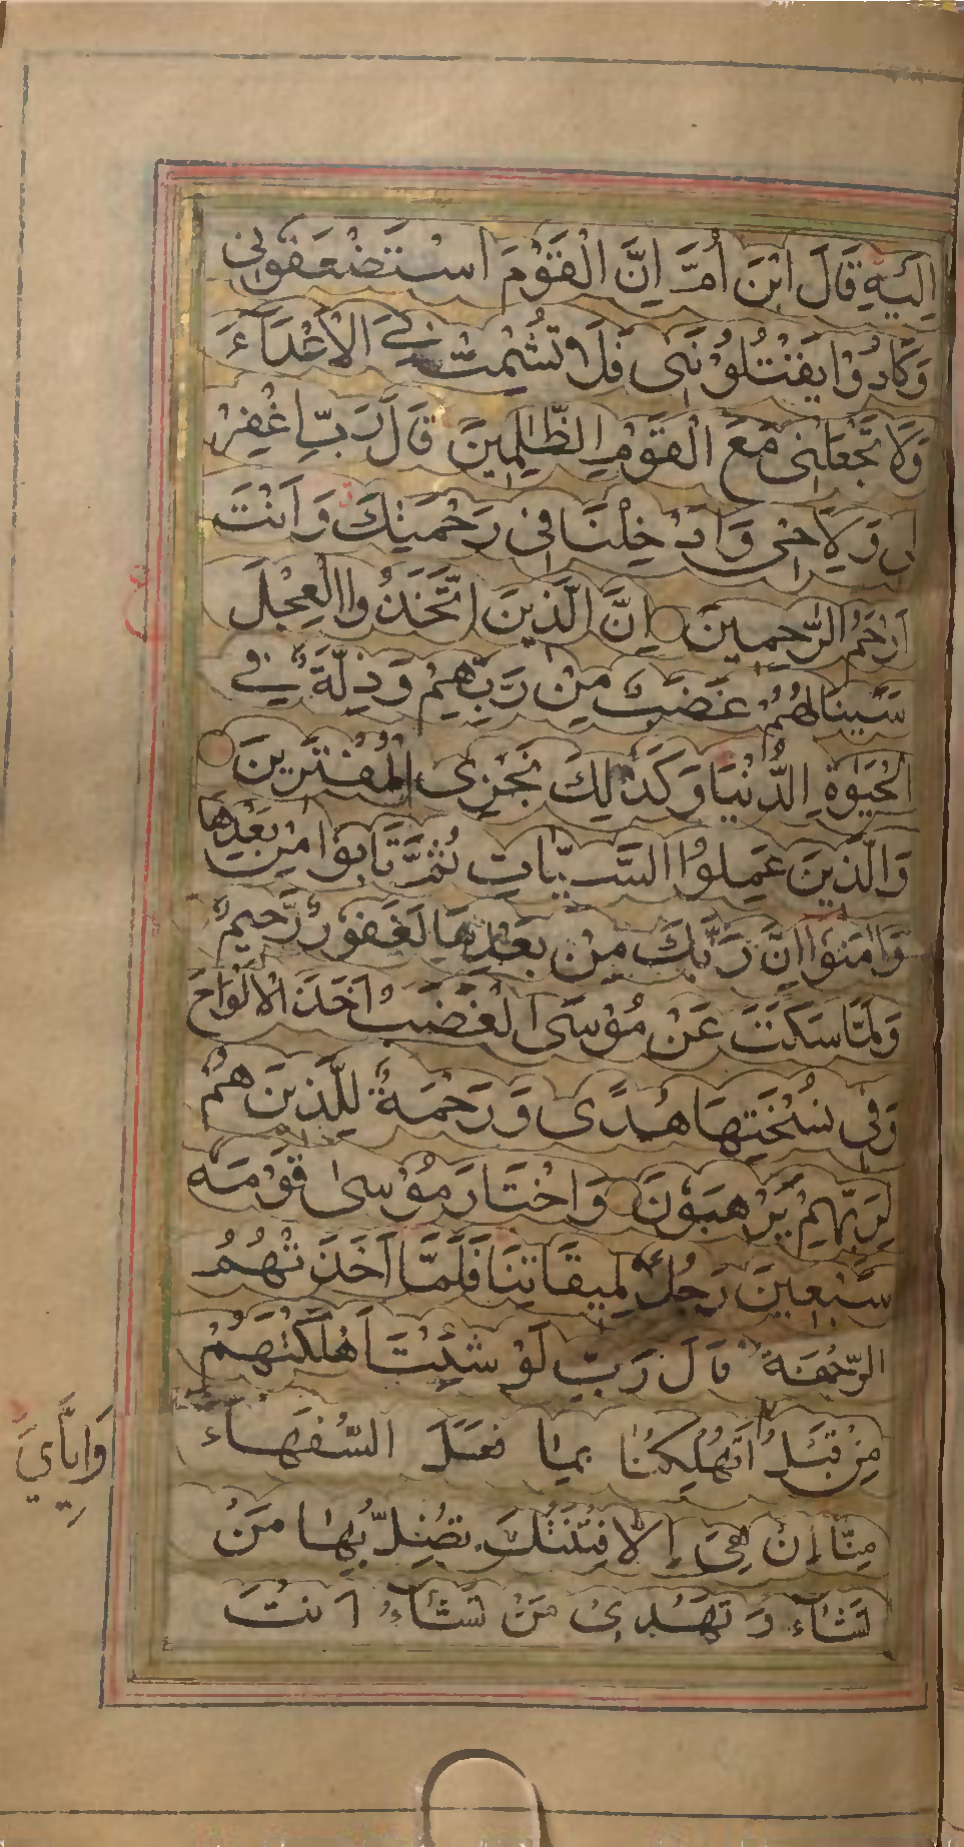 اِلَيْهِ قَالَ ابْنَ اُمَّ اِنَّ الْقَوْمَ اسْتَضْعَفُوْنِى
وَكَادُوْا يَقْتُلُوْنَنِى فَلَا تُشْمِتْ بِىَ الْاَعْدَآءَ
وَلَا تَجْعَلْنِى مَعَ الْقَوْمِ الظّٰلِمِيْنَ قَالَ رَبِّ اغْفِرْ
لِى وَلِاَخِى وَاَدْخِلْنَا فِى رَحْمَتِكَ وَاَنْتَ
اَرْحَمُ الرّٰحِمِيْنَ اِنَّ الَّذِيْنَ اتَّخَذُوا الْعِجْلَ
سَيَنَالُهُمْ غَضَبٌ مِنْ رَبِّهِمْ وَذِلَّةٌ فِى
الْحَيٰوةِ الدُّنْيَا وَكَذٰلِكَ نَجْزِى الْمُفْتَرِيْنَ
وَالَّذِيْنَ عَمِلُوا السَّيِّاٰتِ ثُمَّ تَابُوْا مِنْ بَعْدِهَا
وَاٰمَنُوْا اِنَّ رَبَّكَ مِنْ بَعْدِهَا لَغَفُوْرٌ رَّحِيْمٌ
وَلَمَّا سَكَتَ عَنْ مُوْسَى الْغَضَبُ اَخَذَ الْاَلْوَاحَ
وَفِى نُسْخَتِهَا هُدًى وَرَحْمَةٌ لِلَّذِيْنَ هُمْ
لِرَبِّهِمْ يَرْهَبُوْنَ وَاخْتَارَ مُوْسٰى قَوْمَهٗ
سَبْعِيْنَ رَجُلًا لِمِيْقَاتِنَا فَلَمَّا اَخَذَتْهُمُ
الرَّجْفَةُ قَالَ رَبِّ لَوْ شِئْتَ اَهْلَكْتَهُمْ
مِنْ قَبْلُ اَتُهْلِكُنَا بِمَا فَعَلَ السُّفَهَآءُ
وَاِيَّاىَ
مِنَّا اِنْ هِىَ اِلَّا فِتْنَتُكَ تُضِلُّ بِهَا مَنْ
تَشَآءُ وَتَهْدِىْ مَنْ تَشَآءُ اَنْتَ